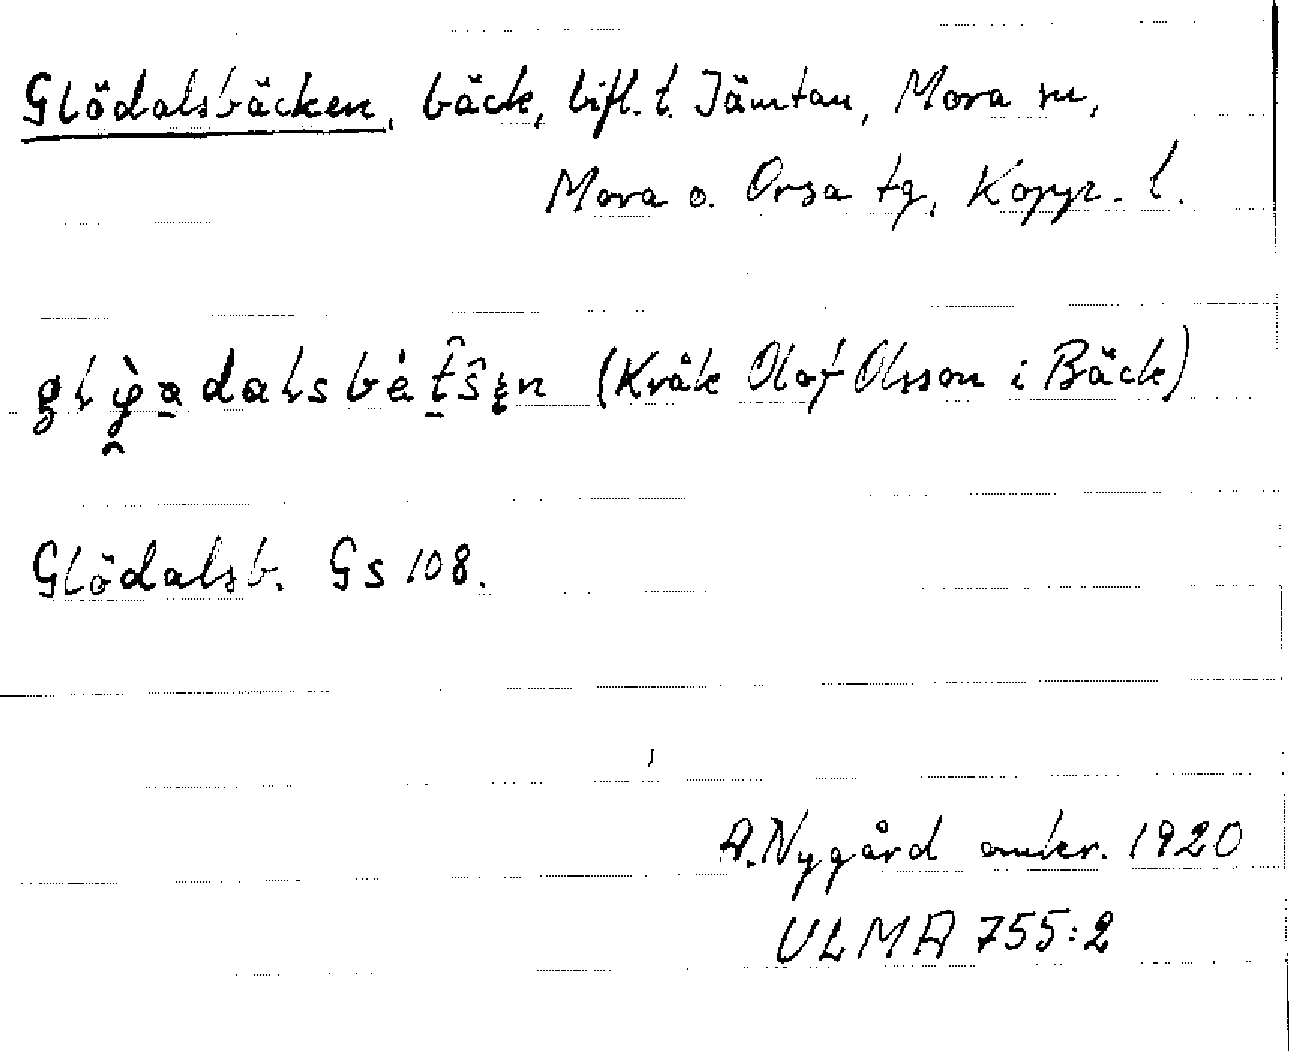 Glödalsbäcken, bäck, bifl. t. Jämtan, Mora sn,
Mora o. Orsa tg, Kopp. l.
(Kråk Olof Olsson i Bäck)
Glödalsb. Gs 108.
A. Nygård omkr. 1920
ULMA 755:2